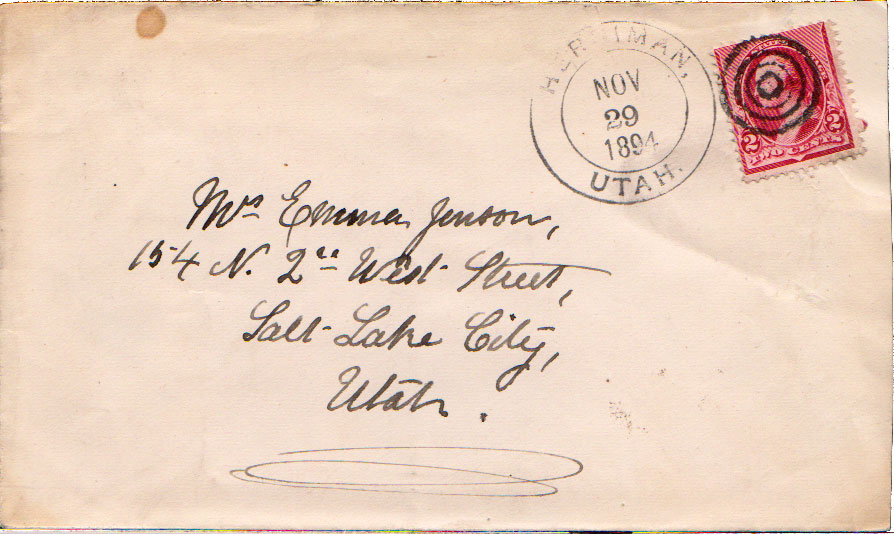 HERRIMAN,
NOV
29
1894
UTAH.
2 TWO CENTS 2
Mrs Emma Jenson,
154 N. 2nd West Street,
Salt Lake City,
Utah.